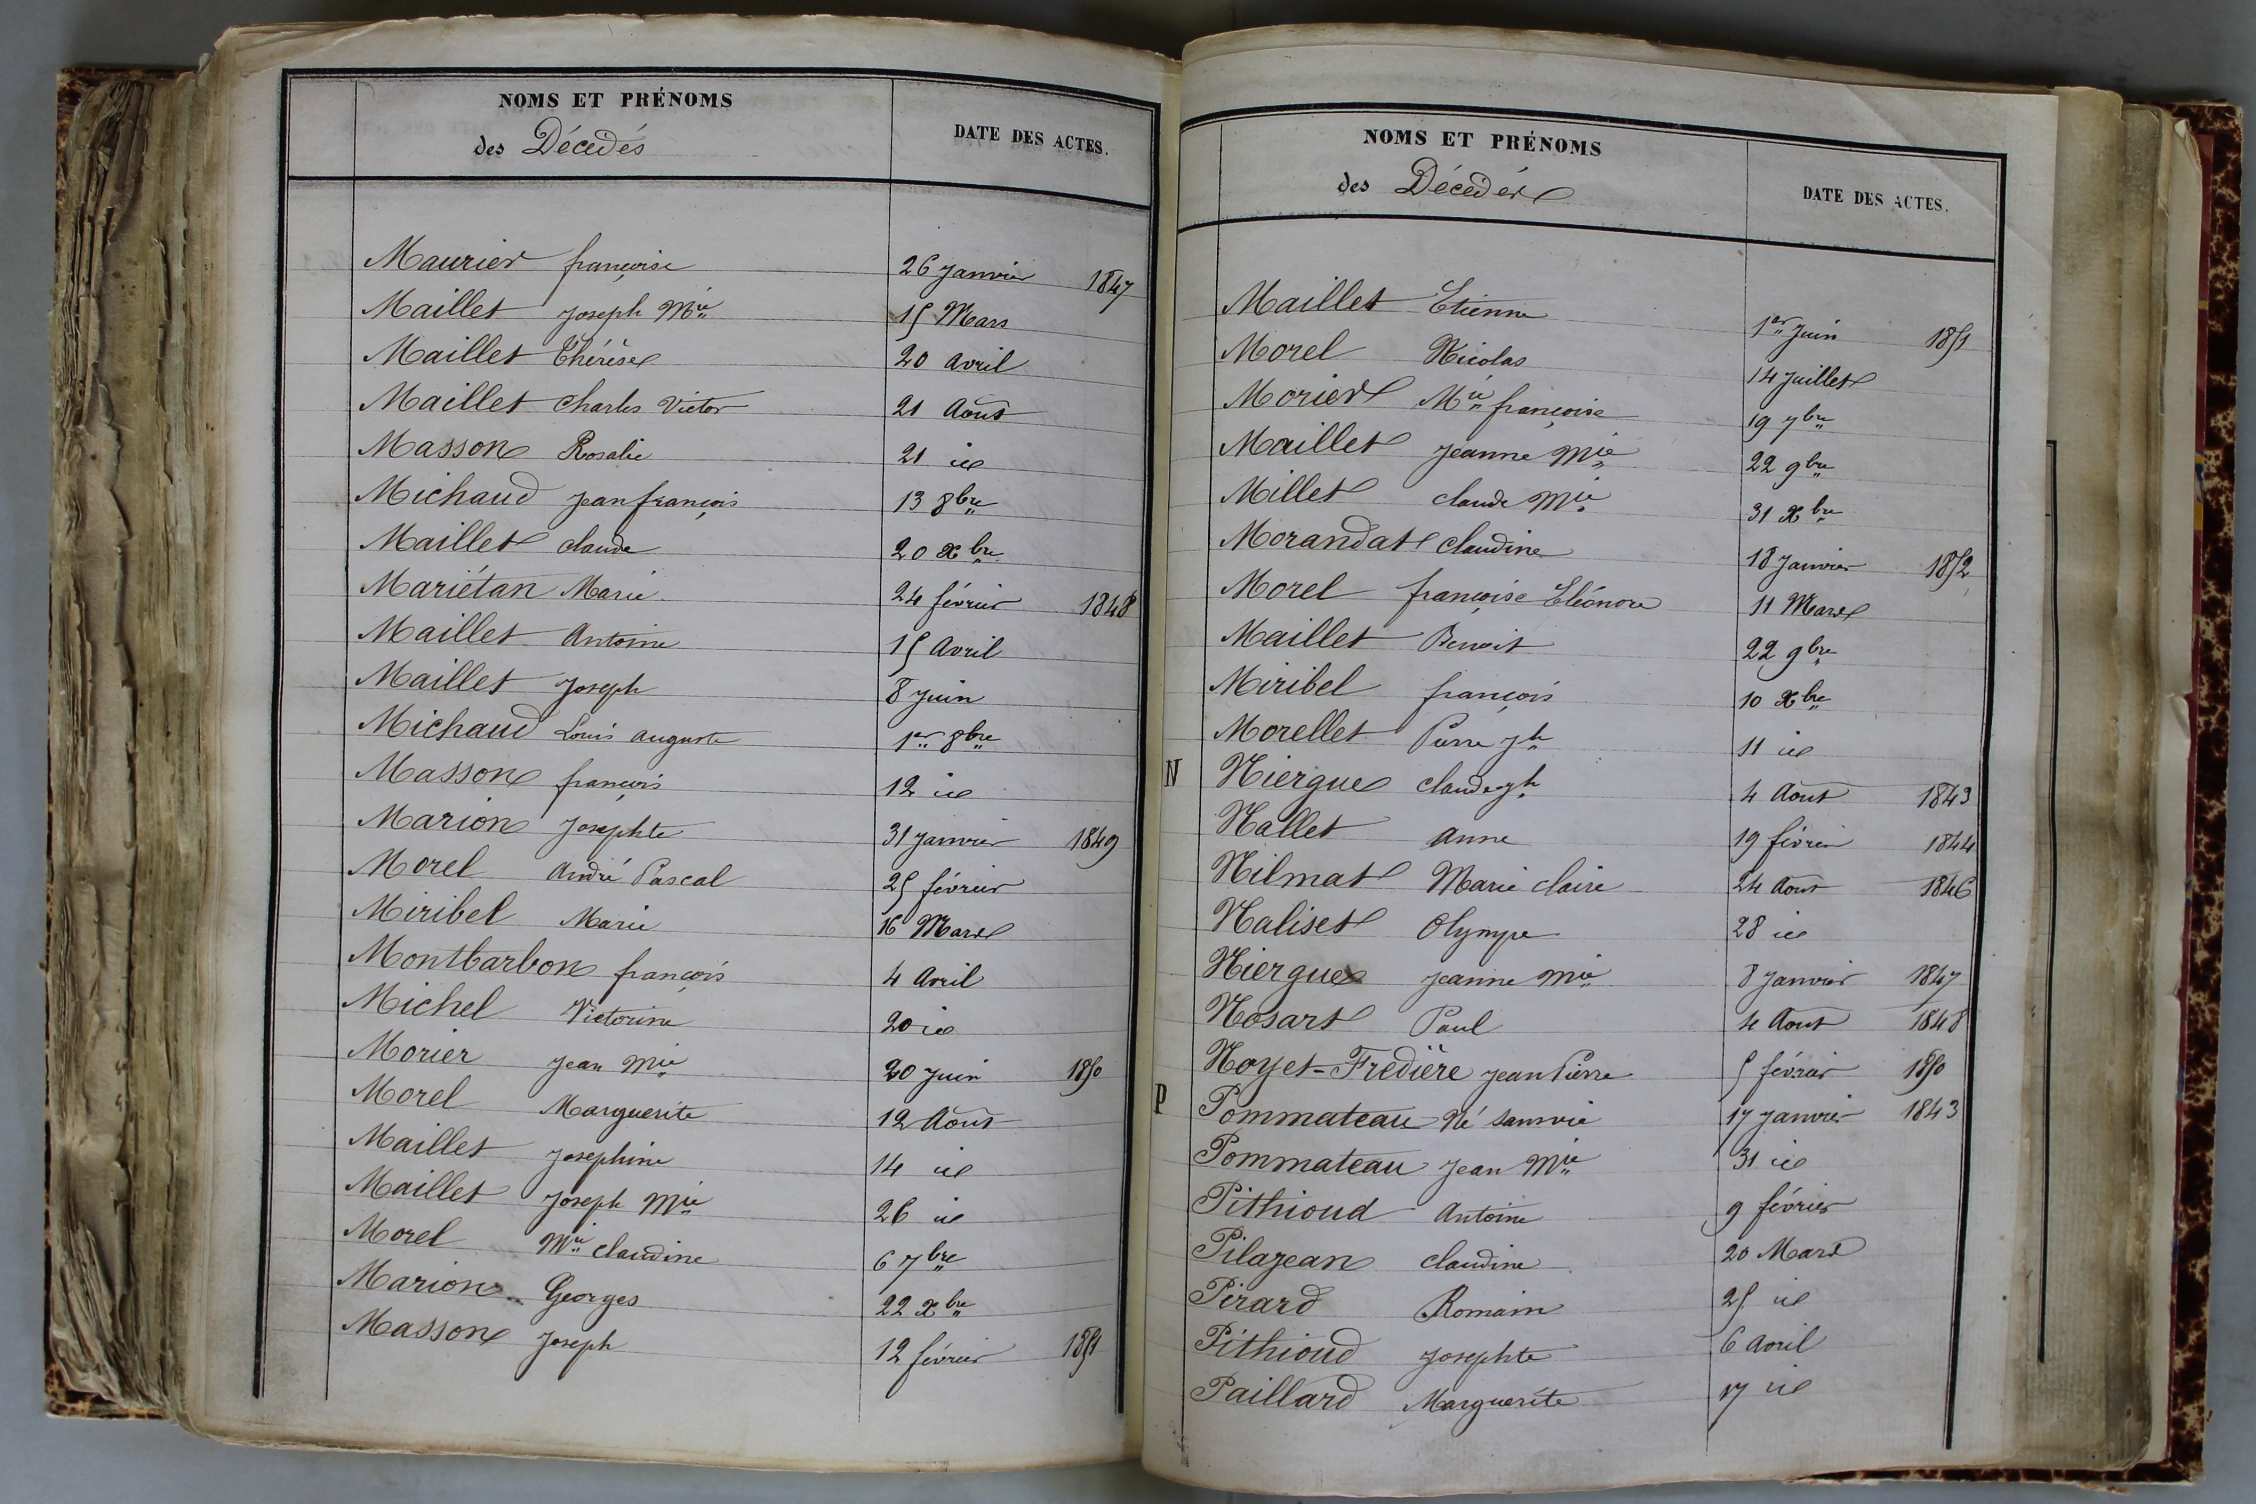 NOMS ET PRÉNOMS
des Décédés
DATE DES ACTES.
Maurier françoise 26 Janvier 1847
Maillet Joseph Mie 15 Mars
Maillet Thérèse 20 avril
Maillet Charles Victor 21 Août
Masson Rosalie 21 id
Michaud Jean françois 13 8bre
Maillet claude 20 xbre
Mariétan Marie 24 février 1848
Maillet Antoine 15 Avril
Maillet Joseph 8 Juin
Michaud Louis auguste 1er 8bre
Masson françois 12 id
Marion Josephte 31 Janvier 1849
Morel André Pascal 25 février
Miribel Marie 16 Mars
Montbarbon françois 4 Avril
Michel Victorine 20 id
Morier Jean Mie 20 Juin 1850
Morel Marguerite 12 Août
Maillet Josephine 14 id
Maillet Joseph Mie 26 id
Morel Mie claudine 6 7bre
Marion Georges 22 xbre
Masson Joseph 12 février 1851
NOMS ET PRÉNOMS
des Décédés
DATE DES ACTES.
Maillet Etienne 1er Juin 1851
Morel Nicolas 14 Juillet
Morier Mie françoise 19 7bre
Maillet Jeanne Mie 22 9bre
Millet claude Mie 31 xbre
Morandat Claudine 18 Janvier 1852
Morel françoise Eléonore 11 Mars
Maillet Benoit 22 9bre
Miribel françois 10 xbre
Morellet Pierre Jh 11 id
N Niergue claude Jh 4 Aout 1843
Nallet anne 19 février 1844
Nilmat Marie claire 24 Aout 1846
Naliset Olympe 28 id
Niergue Jeanne Mie 8 Janvier 1847
Nosart Paul 4 Aout 1848
Noyet-Fredière Jean Pierre 5 février 1850
P Pommateau Né sans vie 17 Janvier 1843
Pommateau Jean Mie 31 id
Pithioud Antoine 9 février
Pilajean Claudine 20 Mars
Pirard Romain 25 id
Pithioud Josephte 6 Avril
Paillard Marguerite 17 id